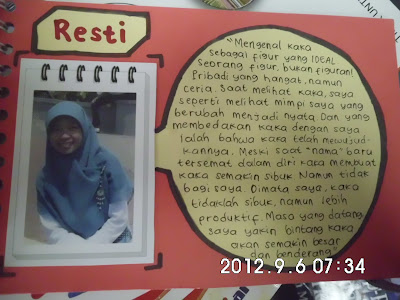 Resti
"Mengenal kaka
sebagai figur yang IDEAL
Seorang figur, bukan figuran!
Pribadi yang hangat, namun
ceria. Saat melihat kaka, saya
seperti melihat mimpi saya yang
berubah menjadi nyata. Dan yang
membedakan kaka dengan saya
ialah bahwa kaka telah mewujud-
kannya. Meski saat "nama" baru
tersemat dalam diri kaka membuat
kaka semakin sibuk Namun tidak
bagi saya. Dimata saya, kaka
tidaklah sibuk, namun lebih
produktif. Masa yang datang,
saya yakin bintang kaka
akan semakin besar
dan benderang"
2012.9.6 07:34